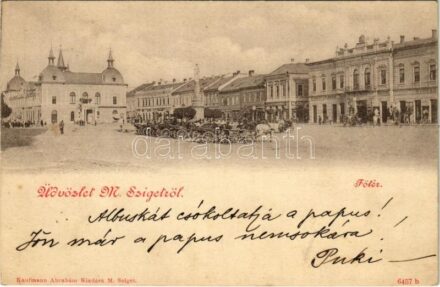 darabanth
Üdvözlet M. Szigetről.
Főtér.
Albuskát csókoltatja a papus!
Jön már a papus nemsokára!
Puki —
Kaufmann Abrahám Kiadása M. Sziget.
6487 b